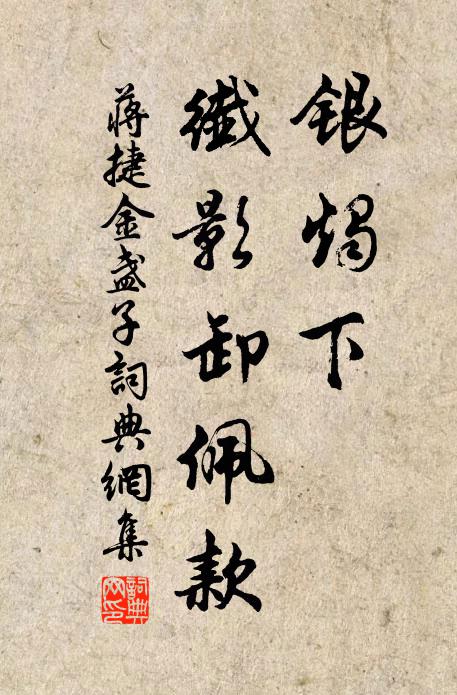 銀燭下
纖影卸佩款
蔣捷金盞子詞典網集
詞典網印